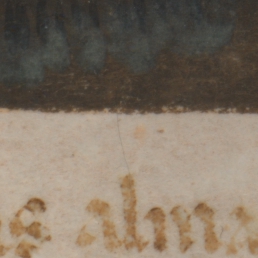 es alma